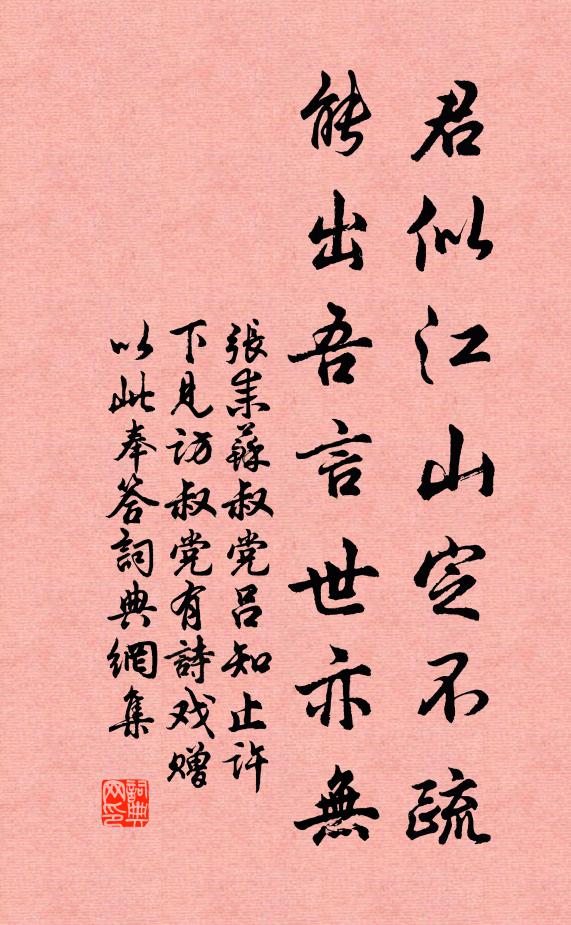 君似江山定不疏
能出吾言世亦無
張耒蘇叔党呂知止許
下見訪叔党有詩戏赠
以此奉答詞典網集
詞典网印